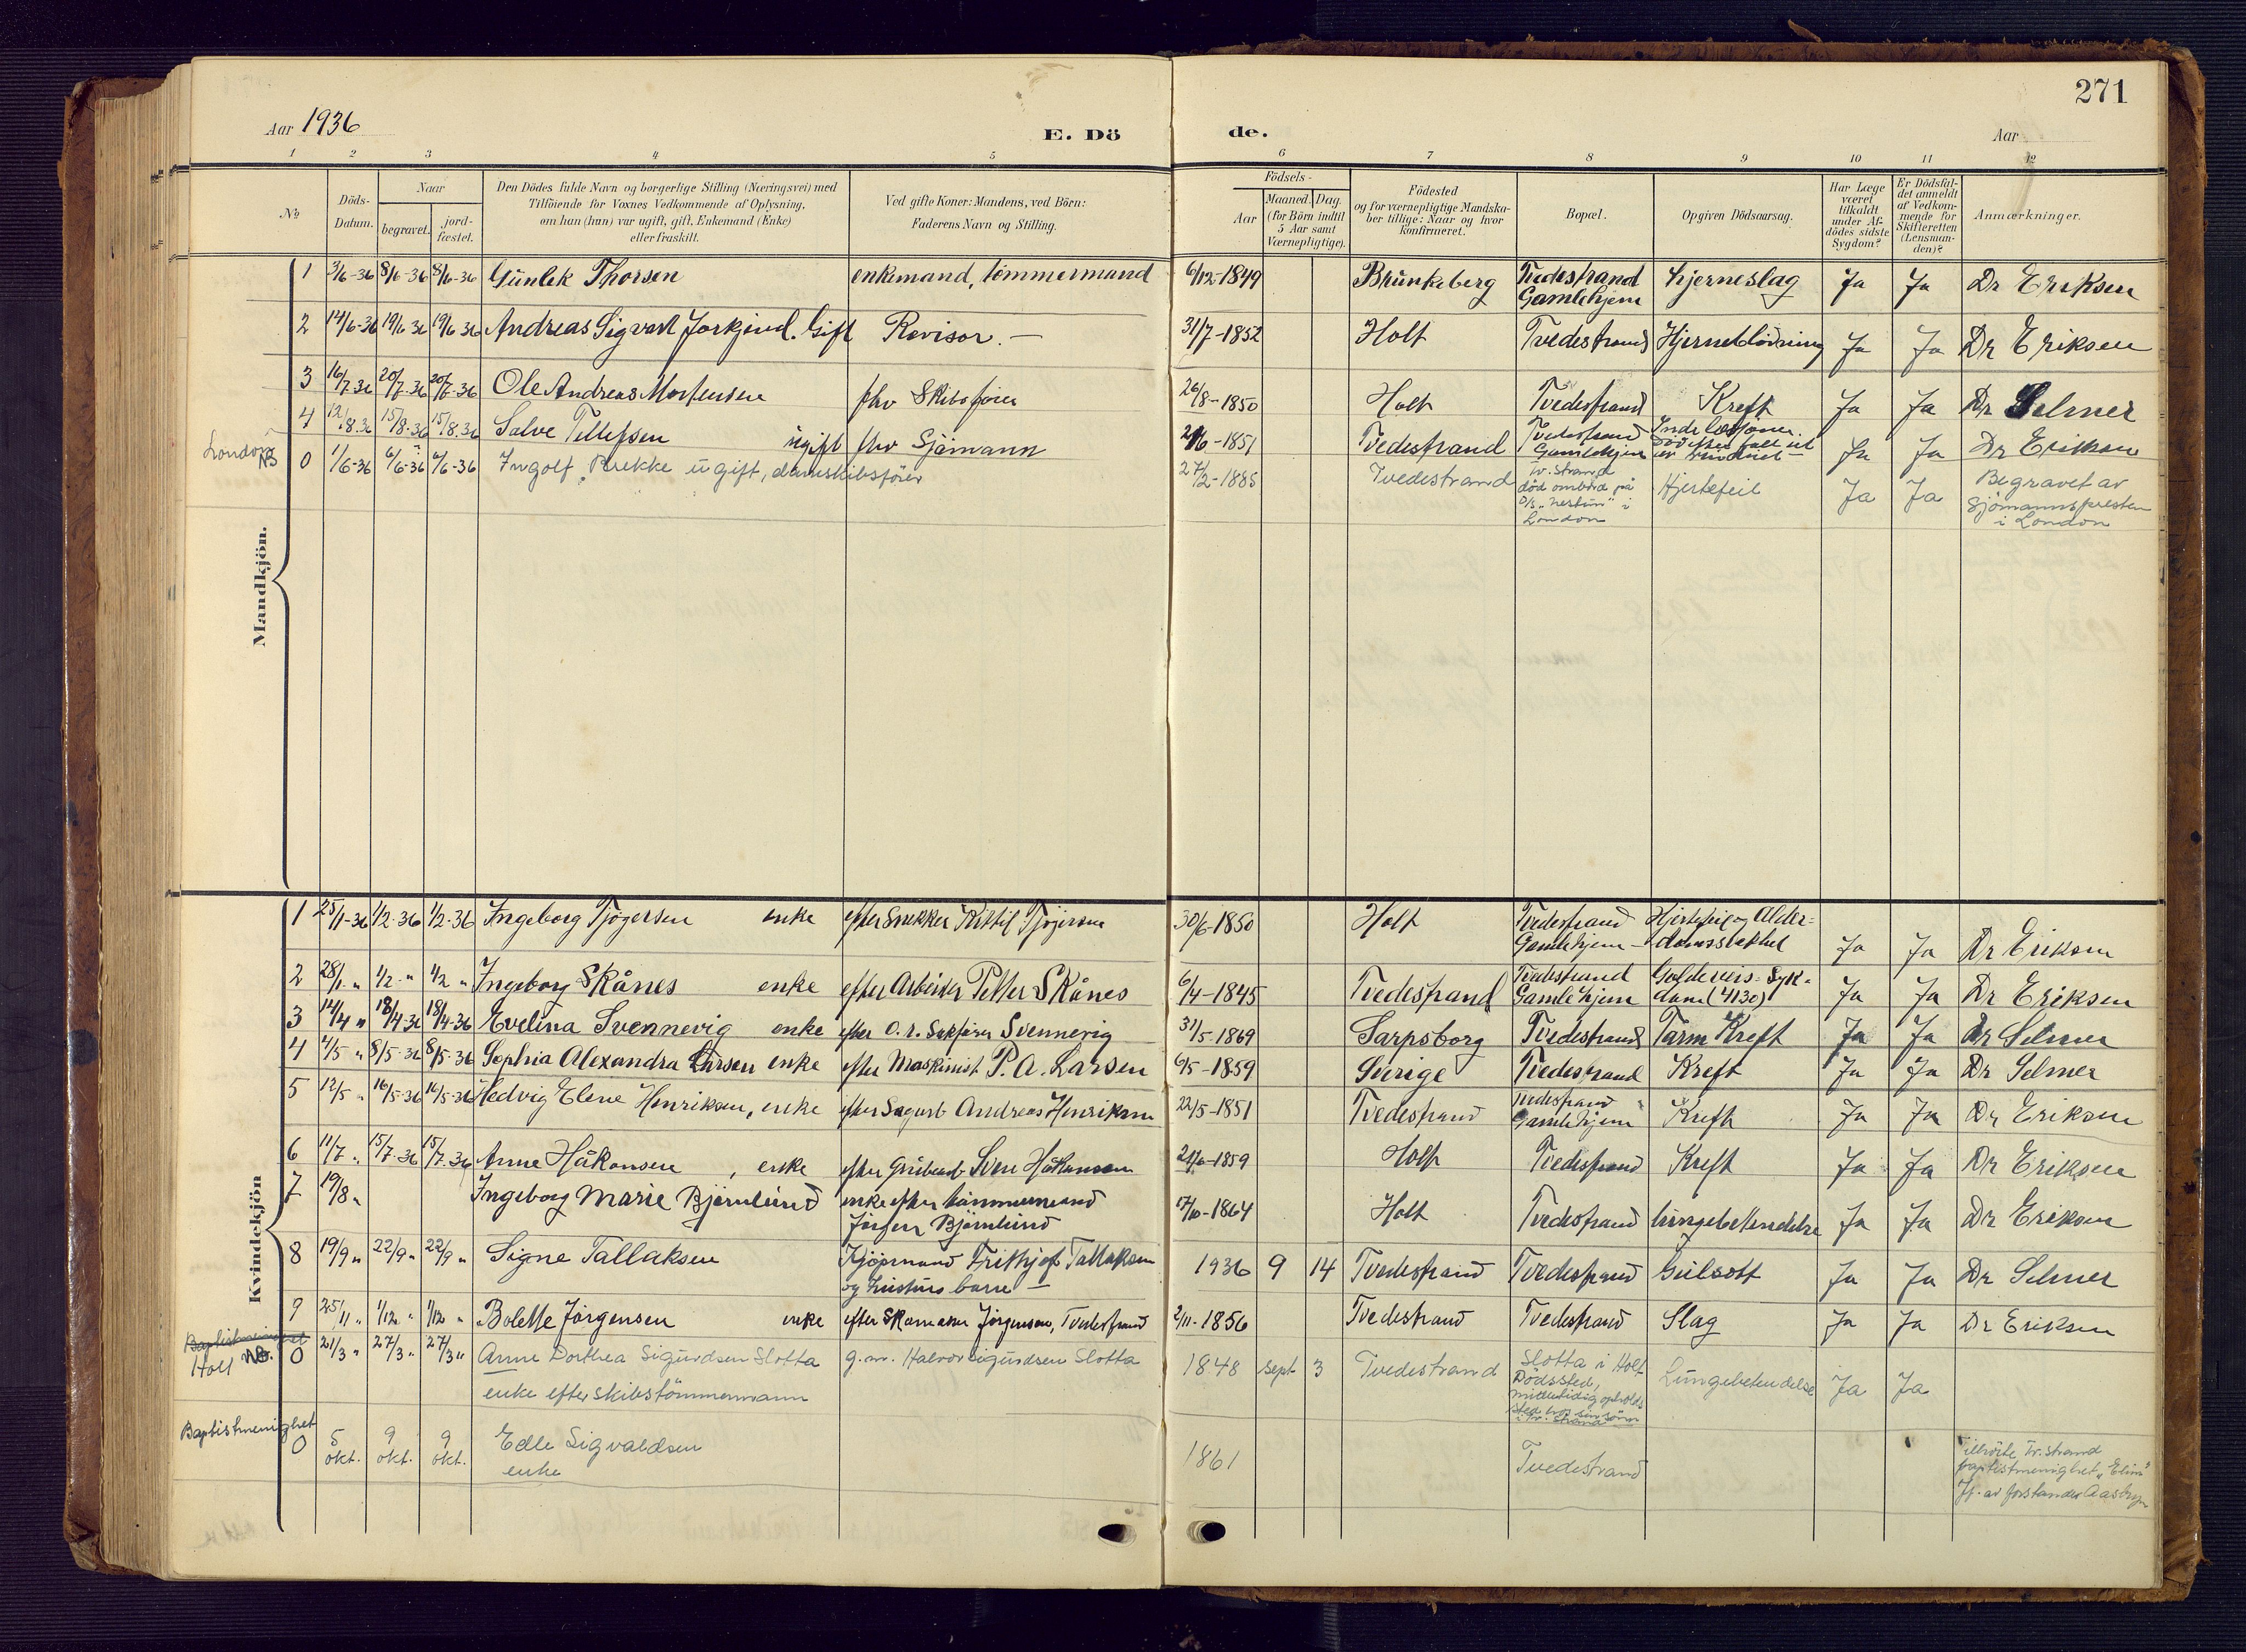 271
Aar 1936
E. Dö de.
Aar
1 2 3 4 5 6 7 8 9 10 11 12
№
Döds-
Datum.
Naar
begravet.
jord-
fæstet.
Den Dödes fulde Navn og borgerlige Stilling (Næringsvei) med
Tilföiende for Voxnes Vedkommende af Oplysning,
om han (hun) var ugift, gift, Enkemand (Enke)
eller fraskilt.
Ved gifte Koner: Mandens, ved Börn:
Faderens Navn og Stilling.
Födsels-
Aar
Maaned. Dag.
(for Börn indtil
5 Aar samt
Værnepligtige).
Födested
og for værnepligtige Mandska-
ber tillige: Naar og hvor
konfirmeret.
Bopæl.
Opgiven Dödsaarsag.
Har Læge
været
tilkaldt
under Af-
dödes sidste
Sygdom?
Er Dödsfal-
det anmeldt
af Vedkom-
mende for
Skifteretten
(Lensman-
den)?
Anmærkninger.
Mandkjön.
1 3/6-36 8/6-36 8/6-36 Günlek Thorsen enkemand, tömmermand 6/12-1849 Brunkeberg Tvedestrand Gamlehjem hjerneslag Ja Ja Dr Eriksen
2 14/6-36 19/6 36 19/6 36 Andreas Sigvart Gift Revisor. — 31/7-1852 Holt Tvedestrand Hjerneblödning Ja Ja Dr Eriksen
3 16/7-36 20/7-36 20/7-36 Ole Andreas Mortensen fhv Skibsförer 26/8-1850 Holt Tvedestrand Kreft Ja Ja Dr Selmer
4 12/8.36 15/8-36 15/8.36 Salve Tellefsen ügift fhv Sjömann 1851 Tvedestrand Tvedestrand Gamlehjem Ja Ja Dr Eriksen
London NB 0 1/6-36 6/6-36 6/6-36 Ingolf Brekke ügift, dampskibsförer 27/2-1885 Tvedestrand Tv. strand
död ombord på
D/S i
London Hjertefeil Ja Ja Begravet av
Sjömannspresten
i London
Kvindekjön
1 25/1-36 1/2-36 1/2-36 Ingeborg Tjögersen enke efter Snekker Kittil Tjögersen 30/6-1850 Holt Tvedestrand
Gamlehjem Hjertefeil og Alder-
domssvakhet Ja Ja Dr Eriksen
2 28/1 " 1/2 " 1/2 " Ingeborg Skånes enke efter Arbeider Petter Skånes 6/4-1845 Tvedestrand Tvedestrand
Gamlehjem Galdeveis-Syk-
dom (4130) Ja Ja Dr Eriksen
3 14/4 " 18/4-36 18/4-36 Evelina Svennevig enke efter O.r. Sakförer Svennevig 31/5-1869 Sarpsborg Tvedestrand Tarm Kreft Ja Ja Dr Selmer
4 4/5 " 8/5-36 8/5-36 Sophia Alexandra Larsen enke efter Maskinist P. A. Larsen 6/5-1859 Sverige Tvedestrand Kreft Ja Ja Dr Selmer
5 12/5 " 16/5-36 16/5-36 Hedvig Elene Henriksen, enke efter Sagarb Andreas Henriksen 22/5-1851 Tvedestrand Tvedestrand
Gamlehjem Kreft Ja Ja Dr Eriksen
6 11/7 " 15/7-36 15/7-36 Anne Håkonsen, enke efter Grübearb Sven Håkonsen 1859 Holt Tvedestrand Kreft Ja Ja Dr Eriksen
7 19/8 " Ingeborg Marie Björnlünd enke efter tömmermand
Jörgen Björnlünd 17/10-1864 Holt Tvedestrand lüngebetendelse Ja Ja Dr Eriksen
8 19/9 " 22/9 " 22/9 " Signe Tallaksen Kjöpmand Frithjof Tallaksen
og hustrus barn — 1936 9 14 Tvedestrand Tvedestrand Gülsott Ja Ja Dr Selmer
9 25/11 " 1/12 " 1/12 " Bolette Jörgensen enke efter Skomaker Jörgensen, Tvedestrand 2/11-1856 Tvedestrand Tvedestrand Slag Ja Ja Dr Eriksen
Baptistmenighet
Holt NB. 0 21/3 " 27/3 " 27/3 " Anne Dorthea Sigürdsen Slotta
enke efter skibstömmermann g.m. Halvor Sigürdsen Slotta 1848 Sept 3 Tvedestrand Slotta i Holt
Dödssted,
midlertidig opholds
sted hos sin sönn
i Tv. strand Lüngebetendelse Ja Ja
Baptistmenighet
0 5 okt. 9 okt. 9 okt. Edle Sigvaldsen
enke 1861 Tvedestrand Tilhörte Tv. strand
baptistmenighet "Elim"
Jf. av forstander